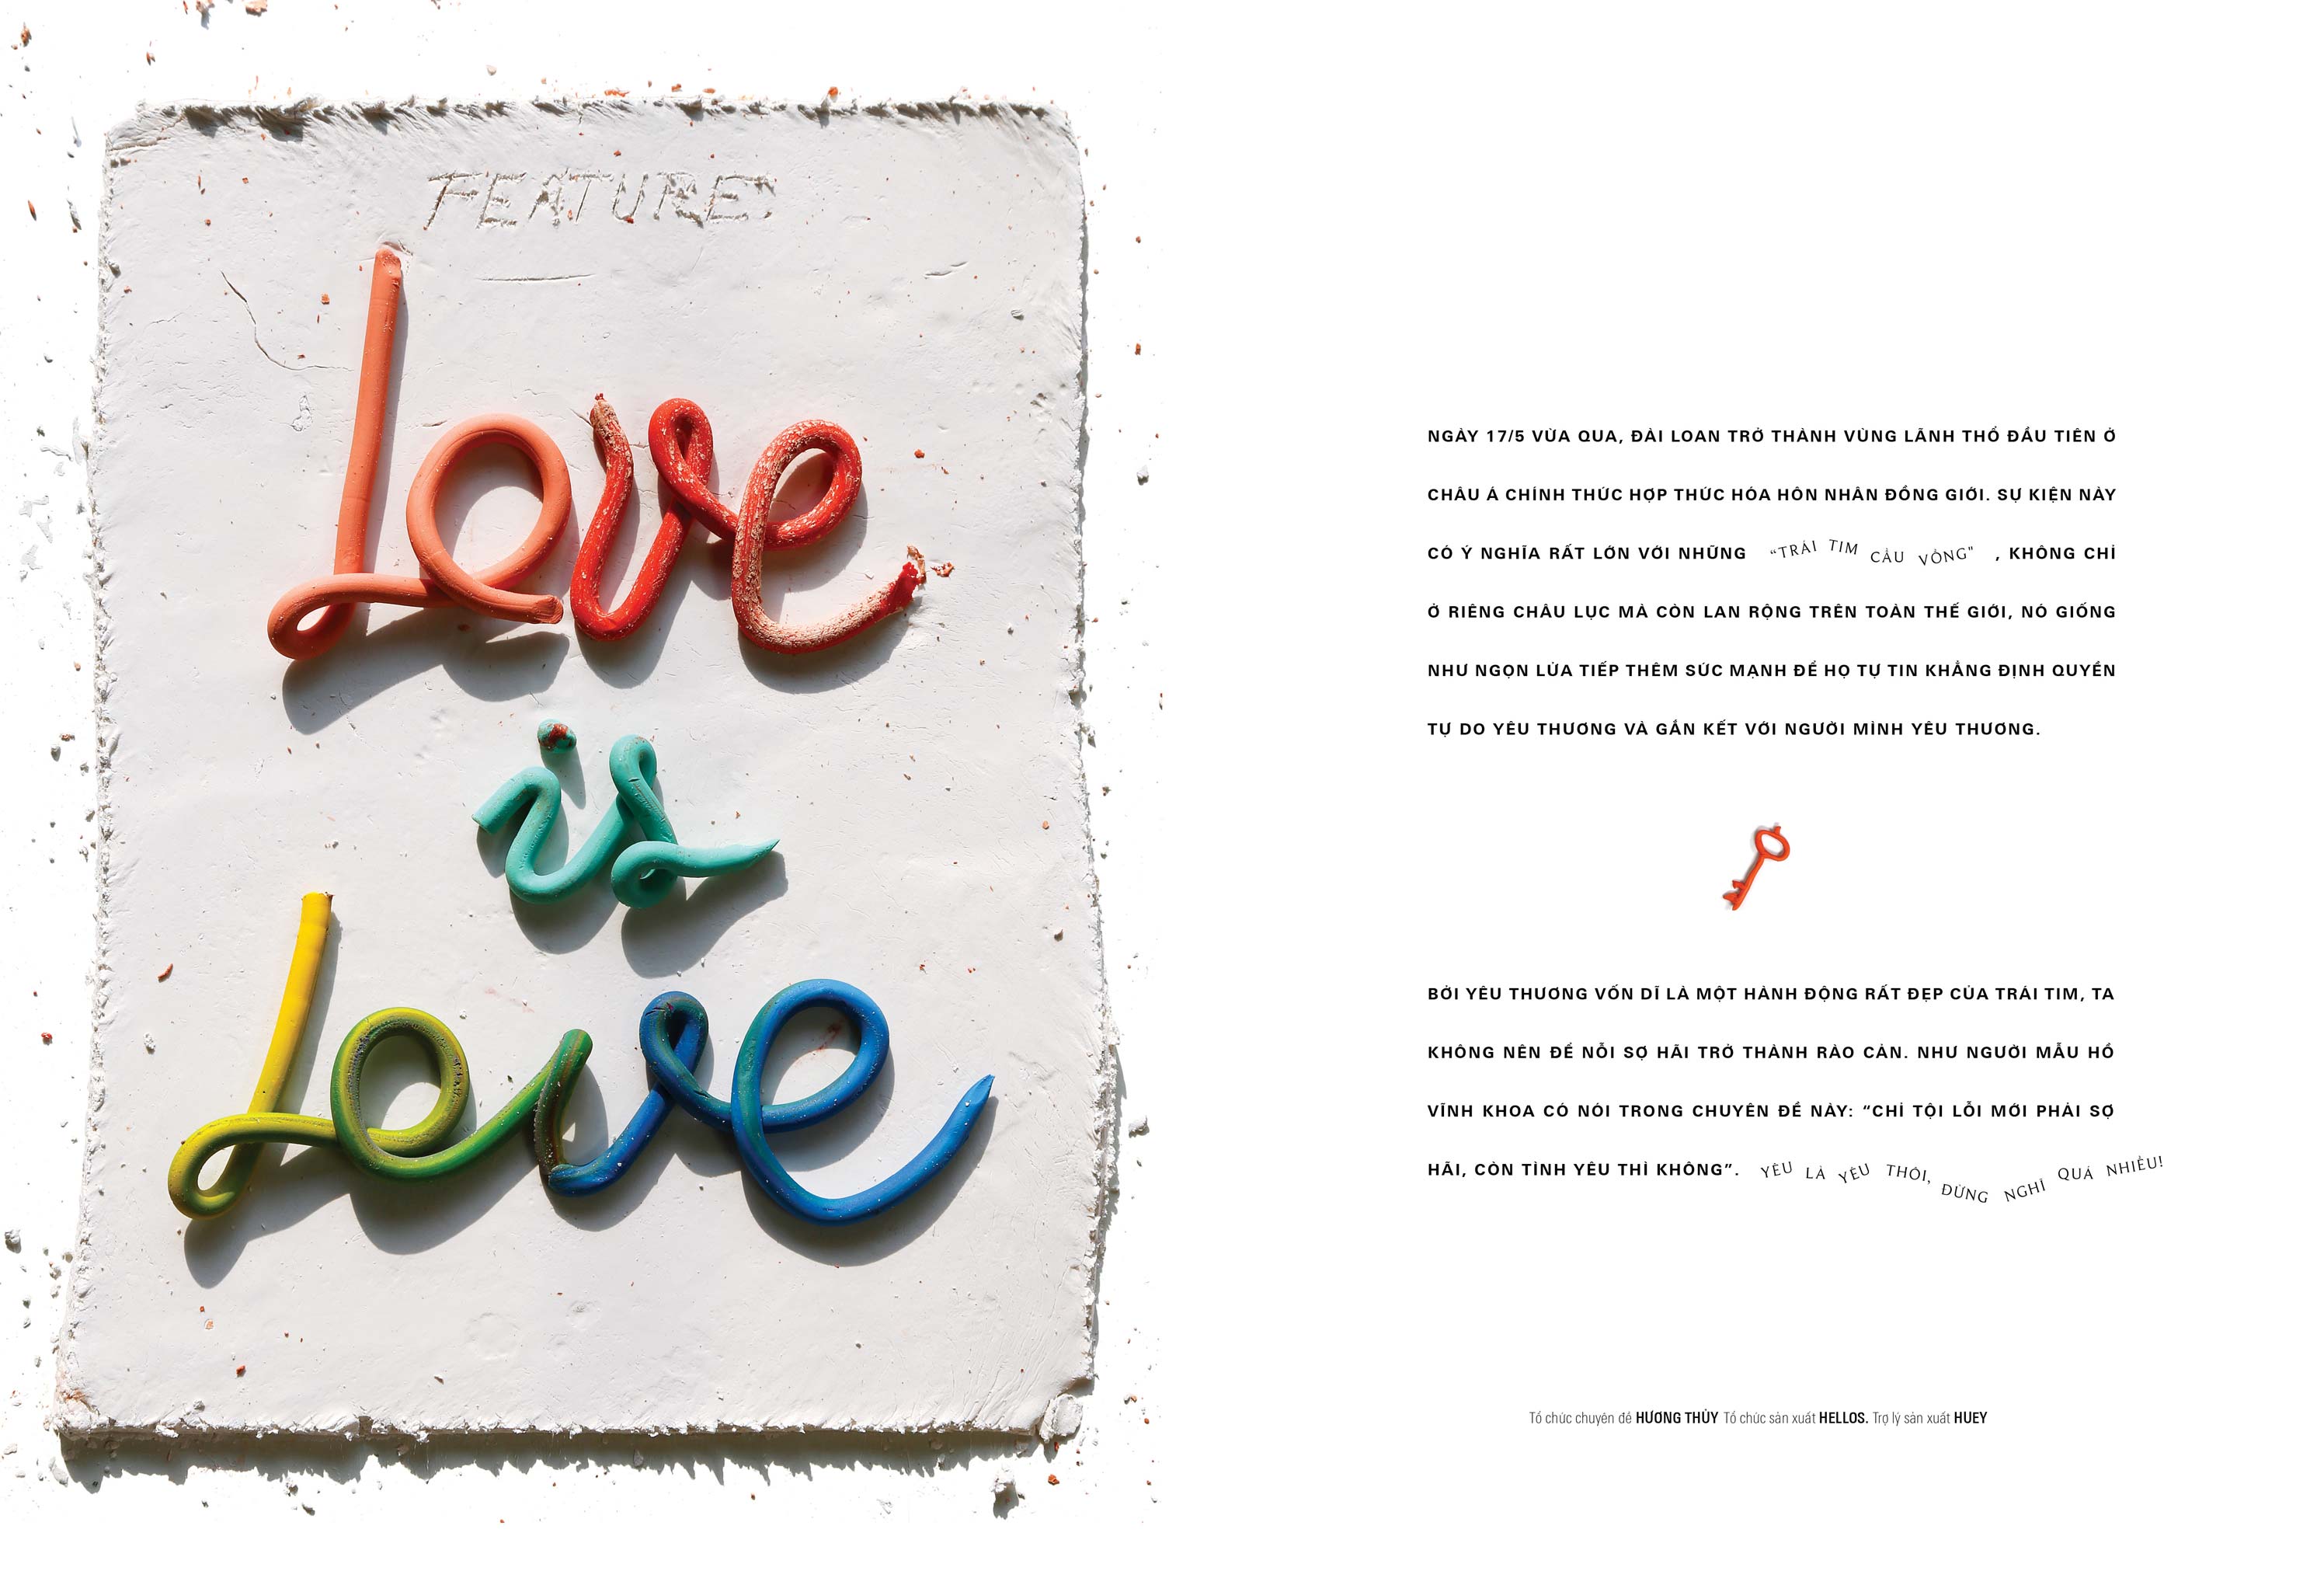 FEATURE:
Love
is
Love
NGÀY 17/5 VỪA QUA, ĐÀI LOAN TRỞ THÀNH VÙNG LÃNH THỔ ĐẦU TIÊN Ở
CHÂU Á CHÍNH THỨC HỢP THỨC HÓA HÔN NHÂN ĐỒNG GIỚI. SỰ KIỆN NÀY
CÓ Ý NGHĨA RẤT LỚN VỚI NHỮNG “TRÁI TIM CẦU VỒNG” , KHÔNG CHỈ
Ở RIÊNG CHÂU LỤC MÀ CÒN LAN RỘNG TRÊN TOÀN THẾ GIỚI, NÓ GIỐNG
NHƯ NGỌN LỬA TIẾP THÊM SỨC MẠNH ĐỂ HỌ TỰ TIN KHẲNG ĐỊNH QUYỀN
TỰ DO YÊU THƯƠNG VÀ GẮN KẾT VỚI NGƯỜI MÌNH YÊU THƯƠNG.
BỞI YÊU THƯƠNG VỐN DĨ LÀ MỘT HÀNH ĐỘNG RẤT ĐẸP CỦA TRÁI TIM, TA
KHÔNG NÊN ĐỂ NỖI SỢ HÃI TRỞ THÀNH RÀO CẢN. NHƯ NGƯỜI MẪU HỒ
VĨNH KHOA CÓ NÓI TRONG CHUYÊN ĐỀ NÀY: “CHỈ TỘI LỖI MỚI PHẢI SỢ
HÃI, CÒN TÌNH YÊU THÌ KHÔNG”. YÊU LÀ YÊU THÔI, ĐỪNG NGHĨ QUÁ NHIỀU!
Tổ chức chuyên đề HƯƠNG THỦY Tổ chức sản xuất HELLOS. Trợ lý sản xuất HUEY